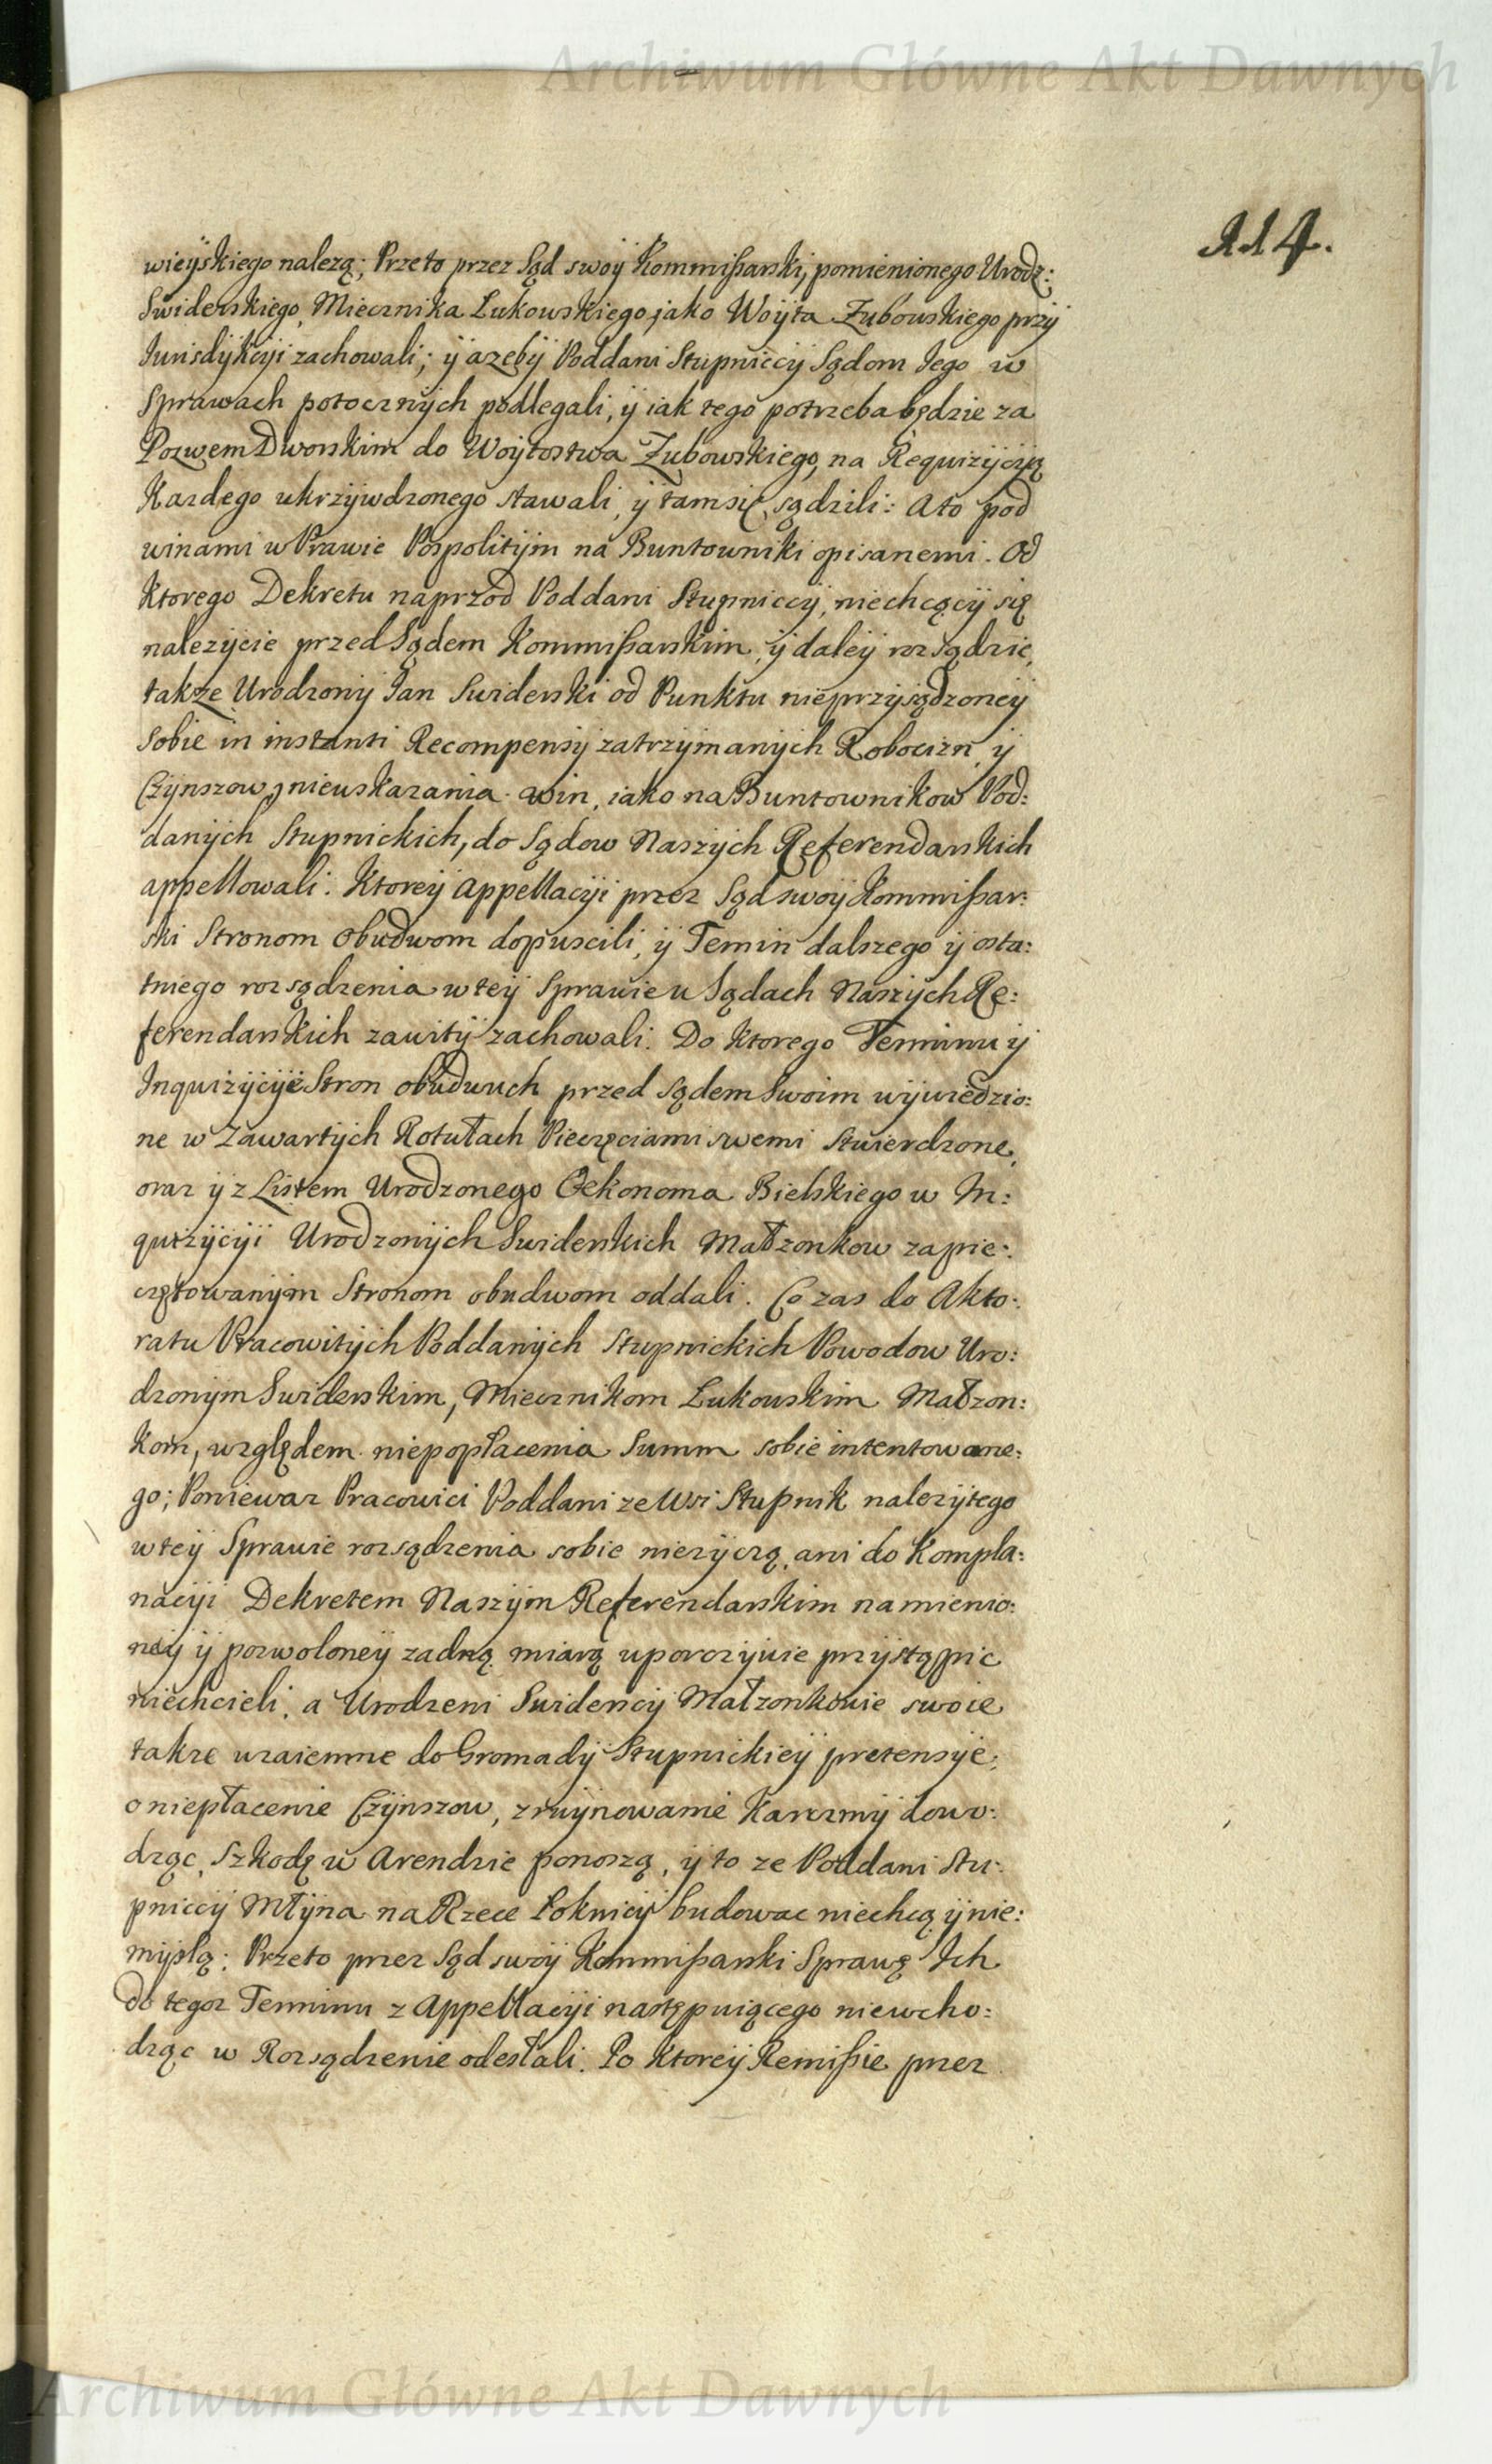 Archiwum Główne Akt Dawnych
114.
wieyskiego nalezą; Przeto przez Sąd swoÿ Kommißarski, pomienionego Urodz:
Swiderskiego, Miecznika Lukowskiego, jako Woÿta Zubowskiego przÿ
Jurisdÿkcÿi zachowali; ÿ azebÿ Poddani Stupniccÿ Sądom Jego w
Sprawach potocznÿch podlegali, ÿ iak tego potrzeba będzie za
Pozwem Dworskim do Woÿtostwa Zubowskiego, na Requizÿcÿą
Kazdego ukrzÿwdzonego stawali, ÿ tam się sądzili: A to pod
winami w Prawie Pospolitÿm na Buntowniki opisanemi. Od
Ktorego Dekretu naprzod Poddani Stupniccÿ, niechcącÿ się
nalezÿcie przed Sądem Kommißarskim, ÿ daleÿ rozsądzic,
takze Urodzonÿ Jan Swiderski od Punktu nieprzÿsądzoneÿ
sobie in instanti Recompensÿ zatrzÿmanÿch Robocizn, ÿ
Czÿnszow, nieuskazania win, iako na Buntownikow Pod:
danÿch Stupnickich, do Sądow Naszÿch Referendarskich
appellowali. Ktoreÿ Appellacÿi przez Sąd swoÿ Kommißar:
ski Stronom obudwom dopuscili, ÿ Temin dalszego ÿ osta:
tniego rozsądzenia w teÿ Sprawie u Sądach Naszÿch Re:
ferendarskich zawitÿ zachowali. Do ktorego Terminu ÿ
Inquizÿcÿe Stron obudwuch przed Sądem Swoim wÿwiedzio:
ne w Zawartÿch Rotułach Pieczęciami swemi stwierdzone,
oraz ÿ z Listem Urodzonego Oekonoma Bielskiego w In:
quizÿcÿi Urodzonÿch Swiderskich Małzonkow zapie:
czętowanÿm Stronom obudwom oddali. Co zas do Akto:
ratu Pracowitÿch Poddanÿch Stupnickich Powodow Uro:
dzonÿm Swiderskim, Miecznikom Lukowskim Małzon:
kom, względem niepopłacenia Summ sobie intentowane:
go; Poniewaz Pracowici Poddani ze Wsi Stupnik nalezÿtego
w teÿ Sprawie rozsądzenia sobie niezÿczą, ani do Kompla:
nacÿi Dekretem Naszÿm Referendarskim namienio:
neÿ ÿ pozwoloneÿ zadną miarą uporczÿwie przÿstąpic
niechcieli, a Urodzeni Swidercÿ Małzonkowie swoie
takze wzaiemne do Gromadÿ Stupnickieÿ pretensÿe,
o niepłacenie Czÿnszow, zruÿnowanie Karczmÿ dowo:
dząc, Szkodę w Arendzie ponoszą, ÿ to ze Poddani Stu:
pniccÿ Młÿna na Rzece Łoknicÿ budowac niechcą ÿ nie:
mÿslą: Przeto przez Sąd swoÿ Kommißarski Sprawę Ich
do tegoz Terminu z Appellacÿi następuiącego niewcho:
dząc w Rozsądzenie odesłali. Po ktoreÿ Remißie przez
Archiwum Główne Akt Dawnych